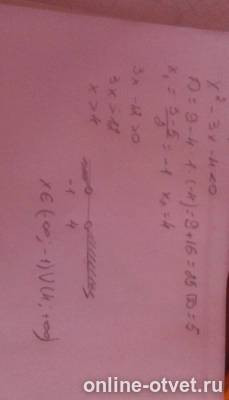 x² - 3x - 4 < 0
D = 9 - 4 · 1 · (-4) = 9 + 16 = 25 √D = 5
x₁ = 3 - 5 / 2 = -1 x₂ = 4
3x - 12 > 0
3x > 12
x > 4
-1 4
x ∈ (-∞; -1) ∪ (4; +∞)
online-otvet.ru